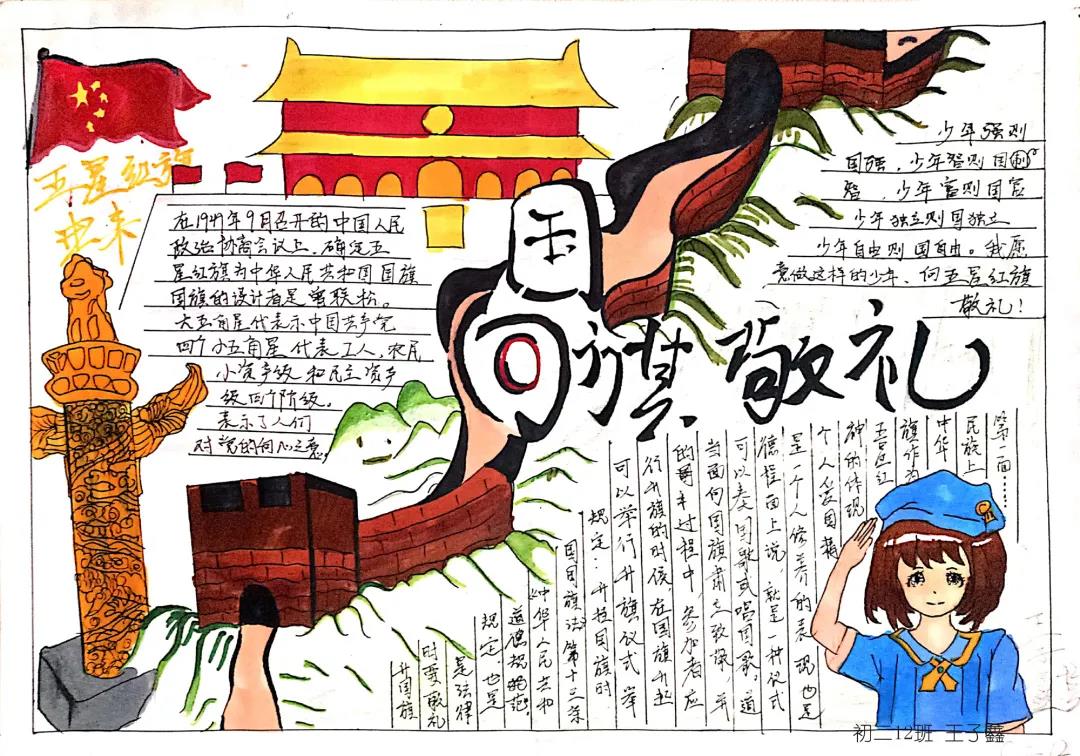 五星红旗
由来
在1949年9月召开的中国人民
政治协商会议上，确定五
星红旗为中华人民共和国国旗
国旗的设计者是曾联松。
大五角星代表示中国共产党
四个小五角星代表工人，农民
小资产级和民主资产
级四个阶级。
表示了人们
对党的向心之意。
少年强则
国强，少年智则国
智，少年富则国富
少年独立则国独立
少年自由则国自由。我愿
意做这样的少年、向五星红旗
敬礼！
向
国旗敬礼
第一面……
民族上
中华
旗作为
五星红
神的体现
个人爱国精
是一个人修养的表现也是
德怪面上说，就是一种仪式
可以奏国歌或唱国歌，道
当面向国旗肃立致敬，并
的过程中，参加者应
行升旗的时候在国旗升起
可以举行升旗仪式举
规定：升挂国旗时
国国旗法》第十三条
《中华人民共和
道德规范
规定，也是
是法律
时要敬礼
升国旗
初二12班 王子鑫